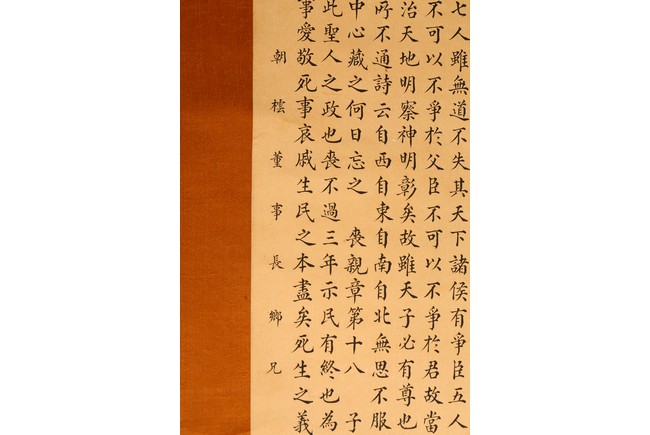 七人雖無道不失其天下諸侯有爭臣五人
不可以不爭於父臣不可以不爭於君故當
治天地明察神明彰矣故雖天子必有尊也
所不通詩云自西自東自南自北無思不服
中心藏之何日忘之 喪親章第十八 子
此聖人之政也喪不過三年示民有終也為
事愛敬死事哀戚生民之本盡矣死生之義
朝橒董事長鄉兄